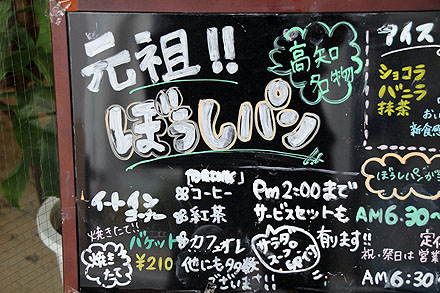 元祖!!
高知
名物
ぼうしパン
イートイン
コーナー
焼きたて!!
バケット
¥210
焼き
たて
コーヒー
紅茶
カフェオレ
他にも多数
ございます!!
Pm2:00まで
サービスセットも
有ります!!
サラダ
スープ
アイス
ショコラ
バニラ
抹茶
ぼうしパンが
AM6:30
祝・祭日は営業
AM6:30